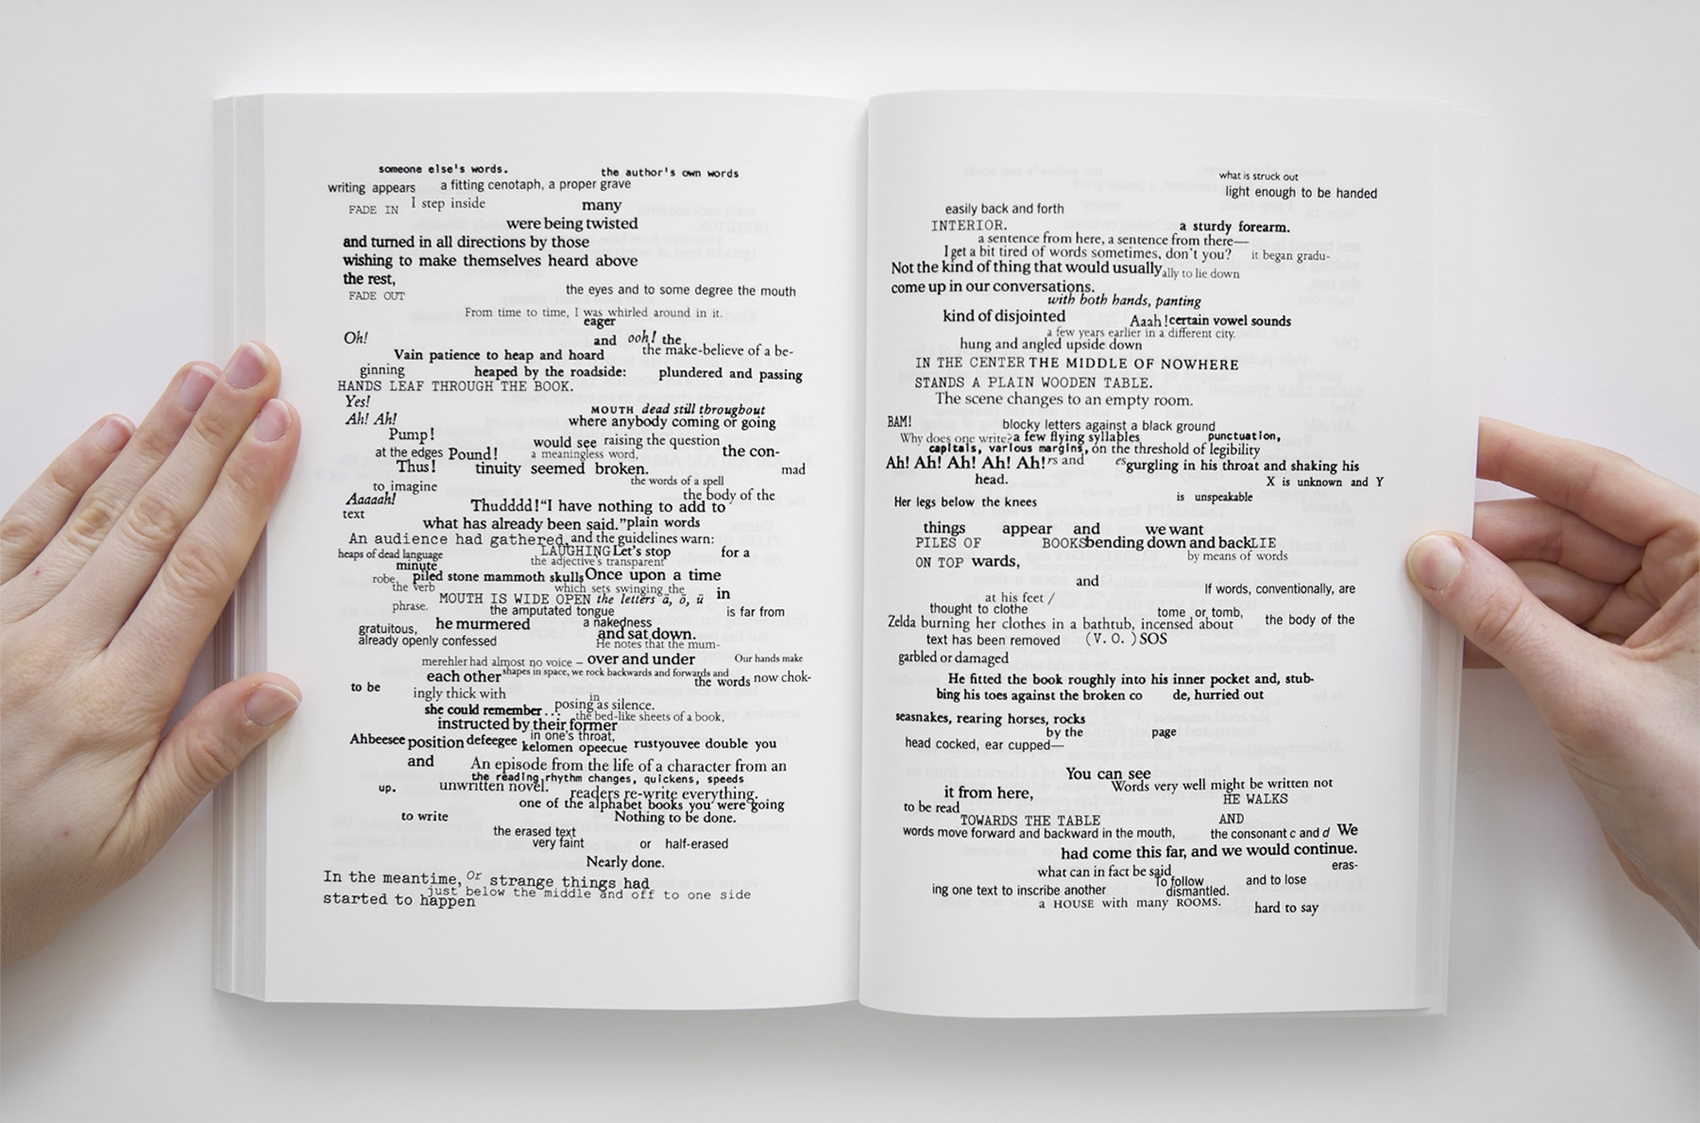 someone else's words. the author's own words
writing appears a fitting cenotaph, a proper grave
FADE IN I step inside many
were being twisted
and turned in all directions by those
wishing to make themselves heard above
the rest,
the eyes and to some degree the mouth
FADE OUT
From time to time, I was whirled around in it.
eager
Oh! and ooh! the
Vain patience to heap and hoard the make-believe of a be-
ginning heaped by the roadside: plundered and passing
HANDS LEAF THROUGH THE BOOK.
Yes!
MOUTH dead still throughout
Ah! Ah! where anybody coming or going
Pump! would see raising the question
at the edges Pound! a meaningless word, the con-
Thus! tinuity seemed broken. mad
the words of a spell
to imagine the body of the
Aaaaah! Thudddd! "I have nothing to add to
text
what has already been said." plain words
An audience had gathered, and the guidelines warn:
heaps of dead language LAUGHING Let's stop for a
minute the adjective's transparent
robe, piled stone mammoth skulls Once upon a time
the verb which sets swinging the
MOUTH IS WIDE OPEN the letters ä, ö, ü in
phrase. the amputated tongue is far from
gratuitous, he murmered a nakedness
already openly confessed and sat down.
He notes that the mum-
merehler had almost no voice – over and under Our hands make
each other shapes in space, we rock backwards and forwards and
to be the words now chok-
ingly thick with in
she could remember... posing as silence.
instructed by their former the bed-like sheets of a book,
in one's throat,
Ahbeesee position defeegee kelomen opeecue rustyouvee double you
and An episode from the life of a character from an
the reading rhythm changes, quickens, speeds
up. unwritten novel. readers re-write everything.
one of the alphabet books you were going
to write Nothing to be done.
the erased text
very faint or half-erased
Nearly done.
In the meantime, Or strange things had
just below the middle and off to one side
started to happen
what is struck out
light enough to be handed
easily back and forth
INTERIOR. a sturdy forearm.
a sentence from here, a sentence from there—
I get a bit tired of words sometimes, don't you? it began gradu-
Not the kind of thing that would usually ally to lie down
come up in our conversations.
with both hands, panting
kind of disjointed Aaah! certain vowel sounds
a few years earlier in a different city.
hung and angled upside down
IN THE CENTER THE MIDDLE OF NOWHERE
STANDS A PLAIN WOODEN TABLE.
The scene changes to an empty room.
BAM! blocky letters against a black ground
Why does one write? a few flying syllables punctuation,
capitals, various margins, on the threshold of legibility
Ah! Ah! Ah! Ah! Ah! rs and es gurgling in his throat and shaking his
head. X is unknown and Y
is unspeakable
Her legs below the knees
things appear and we want
PILES OF BOOKS bending down and back LIE
by means of words
ON TOP wards,
and If words, conventionally, are
at his feet /
thought to clothe tome or tomb,
Zelda burning her clothes in a bathtub, incensed about the body of the
text has been removed (V.O.) SOS
garbled or damaged
He fitted the book roughly into his inner pocket and, stub-
bing his toes against the broken co de, hurried out
seasnakes, rearing horses, rocks
by the page
head cocked, ear cupped—
You can see
it from here, Words very well might be written not
HE WALKS
to be read
TOWARDS THE TABLE AND
words move forward and backward in the mouth, the consonant c and d We
had come this far, and we would continue.
eras-
what can in fact be said
To follow and to lose
ing one text to inscribe another dismantled.
a HOUSE with many ROOMS.
hard to say